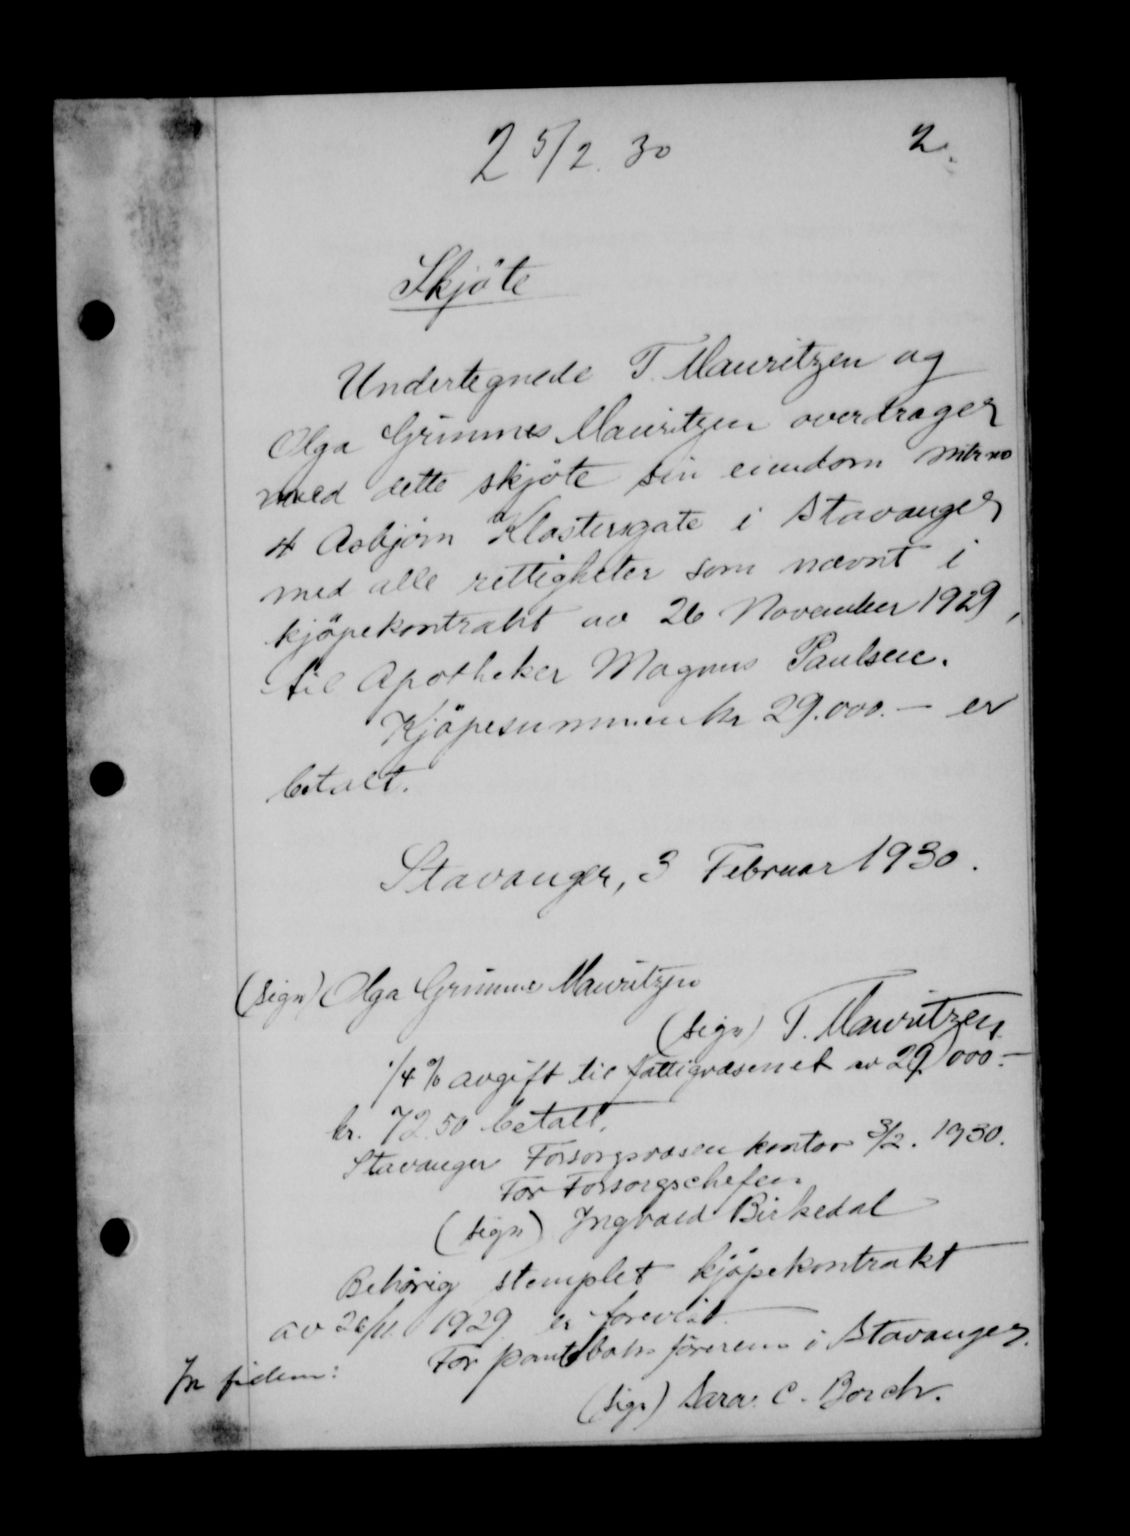 25/2. 30 2.
Skjöte
Undertegnede T. Mauritzen og
Olga Grimnes Mauritzen overdrager
med dette skjöte sin eiendom mtr no
4 Asbjörn Klostersgate i Stavanger
med alle rettigheter som nævnt i
kjöpekontrakt av 26 November 1929,
til Apotheker Magnus Paulsen.
Kjöpesummen kr 29.000.— er
betalt.
Stavanger, 3 Februar 1930.
(sign) Olga Grimnes Mauritzen
(sign) T. Mauritzen
1/4 % avgift til fattigvæsenet av 29000.—
kr. 72.50 betalt.
Stavanger Forsorgsvæsen kontor 3/2. 1930.
For Forsorgschefen
(sign) Ingvald Birkedal
Behörig stemplet kjöpekontrakt
av 26/11. 1929 er forevist
For pantebokföreren i Stavanger.
In fidem:
(sign) Sara C. Borch.